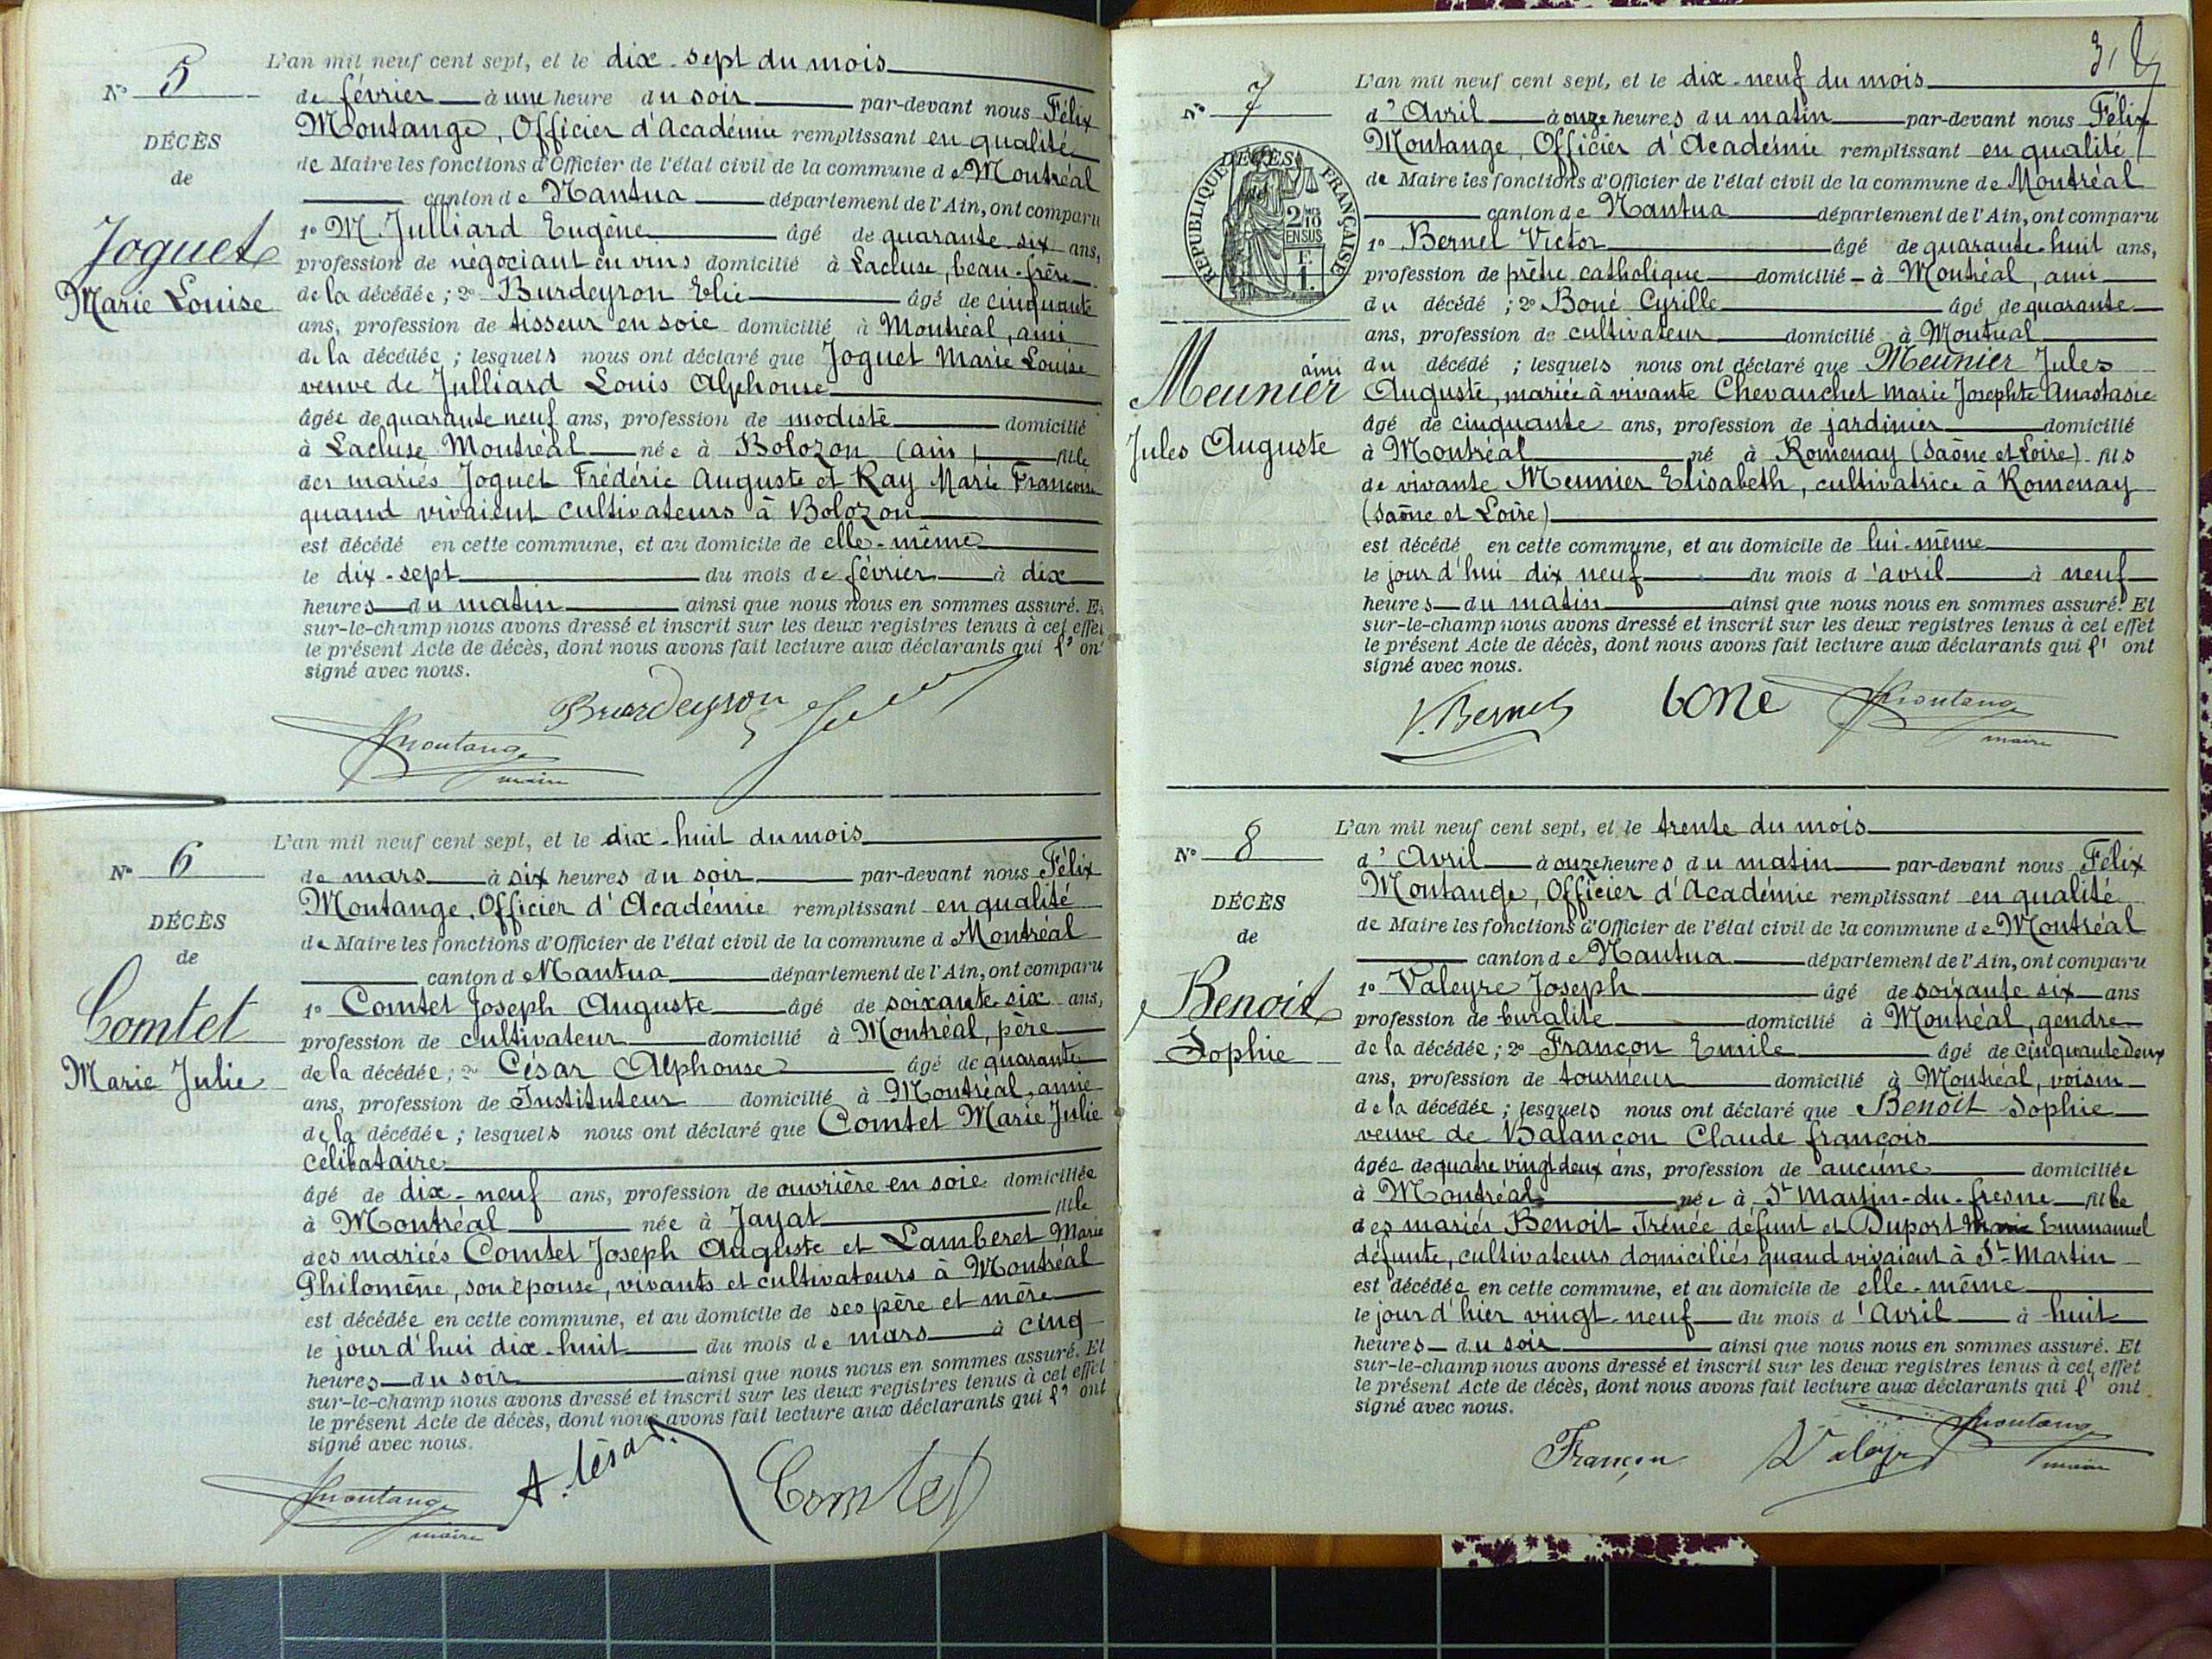 L'an mil neuf cent sept, et le dix-sept du mois
N° 5
de février à une heure du soir par-devant nous Félix
Montange, Officier d'Académie remplissant en qualité
DÉCÈS
de Maire les fonctions d'Officier de l'état civil de la commune de Montréal
de
canton de Nantua département de l'Ain, ont comparu
1° M. Julliard Eugène âgé de quarante-six ans,
Joguet
profession de négociant en vins domicilié à Lacluse, beau-frère
Marie Louise
de la décédée ; 2° Burdeyron Elie âgé de cinquante
ans, profession de tisseur en soie domicilié à Montréal, ami
de la décédée ; lesquels nous ont déclaré que Joguet Marie Louise
veuve de Julliard Louis Alphonse
âgée de quarante neuf ans, profession de modiste domicilié
à Lacluse Montréal née à Bolozon (ain) fille
des mariés Joguet Frédéric Auguste et Ray Marie Françoise
quand vivaient cultivateurs à Bolozon
est décédé en cette commune, et au domicile de elle-même
le dix-sept du mois de février à dix
heures du matin ainsi que nous nous en sommes assuré. Et
sur-le-champ nous avons dressé et inscrit sur les deux registres tenus à cet effet
le présent Acte de décès, dont nous avons fait lecture aux déclarants qui l'ont
signé avec nous.
Burdeyron
Montange
maire
L'an mil neuf cent sept, et le dix-huit du mois
N° 6
de mars à six heures du soir par-devant nous Félix
Montange, Officier d'Académie remplissant en qualité
DÉCÈS
de Maire les fonctions d'Officier de l'état civil de la commune d e Montréal
de
canton d e Nantua département de l'Ain, ont comparu
1° Comtet Joseph Auguste âgé de soixante-six ans,
Comtet
profession de cultivateur domicilié à Montréal, père
Marie Julie
de la décédée ; 2° César Alphonse âgé de quarante
ans, profession de Instituteur domicilié à Montréal, amie
de la décédée ; lesquels nous ont déclaré que Comtet Marie Julie
célibataire
âgé de dix-neuf ans, profession de ouvrière en soie domiciliée
à Montréal née à Jayat fille
des mariés Comtet Joseph Auguste et Lamberet Marie
Philomène, son épouse, vivants et cultivateurs à Montréal
est décédée en cette commune, et au domicile de ses père et mère
le jour d'hui dix-huit du mois de mars à cinq
heures du soir ainsi que nous nous en sommes assuré. Et
sur-le-champ nous avons dressé et inscrit sur les deux registres tenus à cet effet
le présent Acte de décès, dont nous avons fait lecture aux déclarants qui l'ont
signé avec nous.
A. César
Comtet
Montange
maire
3
L'an mil neuf cent sept, et le dix-neuf du mois
N° 7
d'Avril à onze heures du matin par-devant nous Félix
Montange, Officier d'Académie remplissant en qualité
DÉCÈS
RÉPUBLIQUE FRANÇAISE
2/10 EN SUS
F. 1.
de Maire les fonctions d'Officier de l'état civil de la commune de Montréal
canton de Nantua département de l'Ain, ont comparu
1° Bernel Victor âgé de quarante-huit ans,
profession de prêtre catholique domicilié à Montréal, ami
du décédé ; 2° Boné Cyrille âgé de quarante
ans, profession de cultivateur domicilié à Montréal
ami du décédé ; lesquels nous ont déclaré que Meunier Jules
Meunier
Auguste, mariée à vivante Chevauchet Marie Josephte Anastasie
Jules Auguste
âgé de cinquante ans, profession de jardinier domicilié
à Montréal né à Romenay (Saône et Loire) fils
de vivante Meunier Elisabeth, cultivatrice à Romenay
(Saône et Loire)
est décédé en cette commune, et au domicile de lui-même
le jour d'hui dix neuf du mois d'avril à neuf
heures du matin ainsi que nous nous en sommes assuré. Et
sur-le-champ nous avons dressé et inscrit sur les deux registres tenus à cet effet
le présent Acte de décès, dont nous avons fait lecture aux déclarants qui l'ont
signé avec nous.
V. Bernel bone Montange
maire
L'an mil neuf cent sept, et le trente du mois
N° 8
d'Avril à onze heures du matin par-devant nous Félix
Montange, Officier d'Académie remplissant en qualité
DÉCÈS
de Maire les fonctions d'Officier de l'état civil de la commune de Montréal
de
canton de Nantua département de l'Ain, ont comparu
1° Valeyre Joseph âgé de soixante six ans
Benoit
profession de buraliste domicilié à Montréal, gendre
Sophie
de la décédée ; 2° Françon Emile âgé de cinquante deux
ans, profession de tourneur domicilié à Montréal, voisin
de la décédée ; lesquels nous ont déclaré que Benoit Sophie
veuve de Balançon Claude françois
âgée de quatre vingt deux ans, profession de aucune domiciliée
à Montréal née à St Martin-du-fresne fille
des mariés Benoit Irénée défunt et Duport Marie Emmanuel
défunte, cultivateurs domiciliés quand vivaient à St-Martin
est décédée en cette commune, et au domicile de elle-même
le jour d'hier vingt-neuf du mois d'Avril à huit
heures du soir ainsi que nous nous en sommes assuré. Et
sur-le-champ nous avons dressé et inscrit sur les deux registres tenus à cet effet
le présent Acte de décès, dont nous avons fait lecture aux déclarants qui l'ont
signé avec nous.
Françon Valeyre Montange
maire